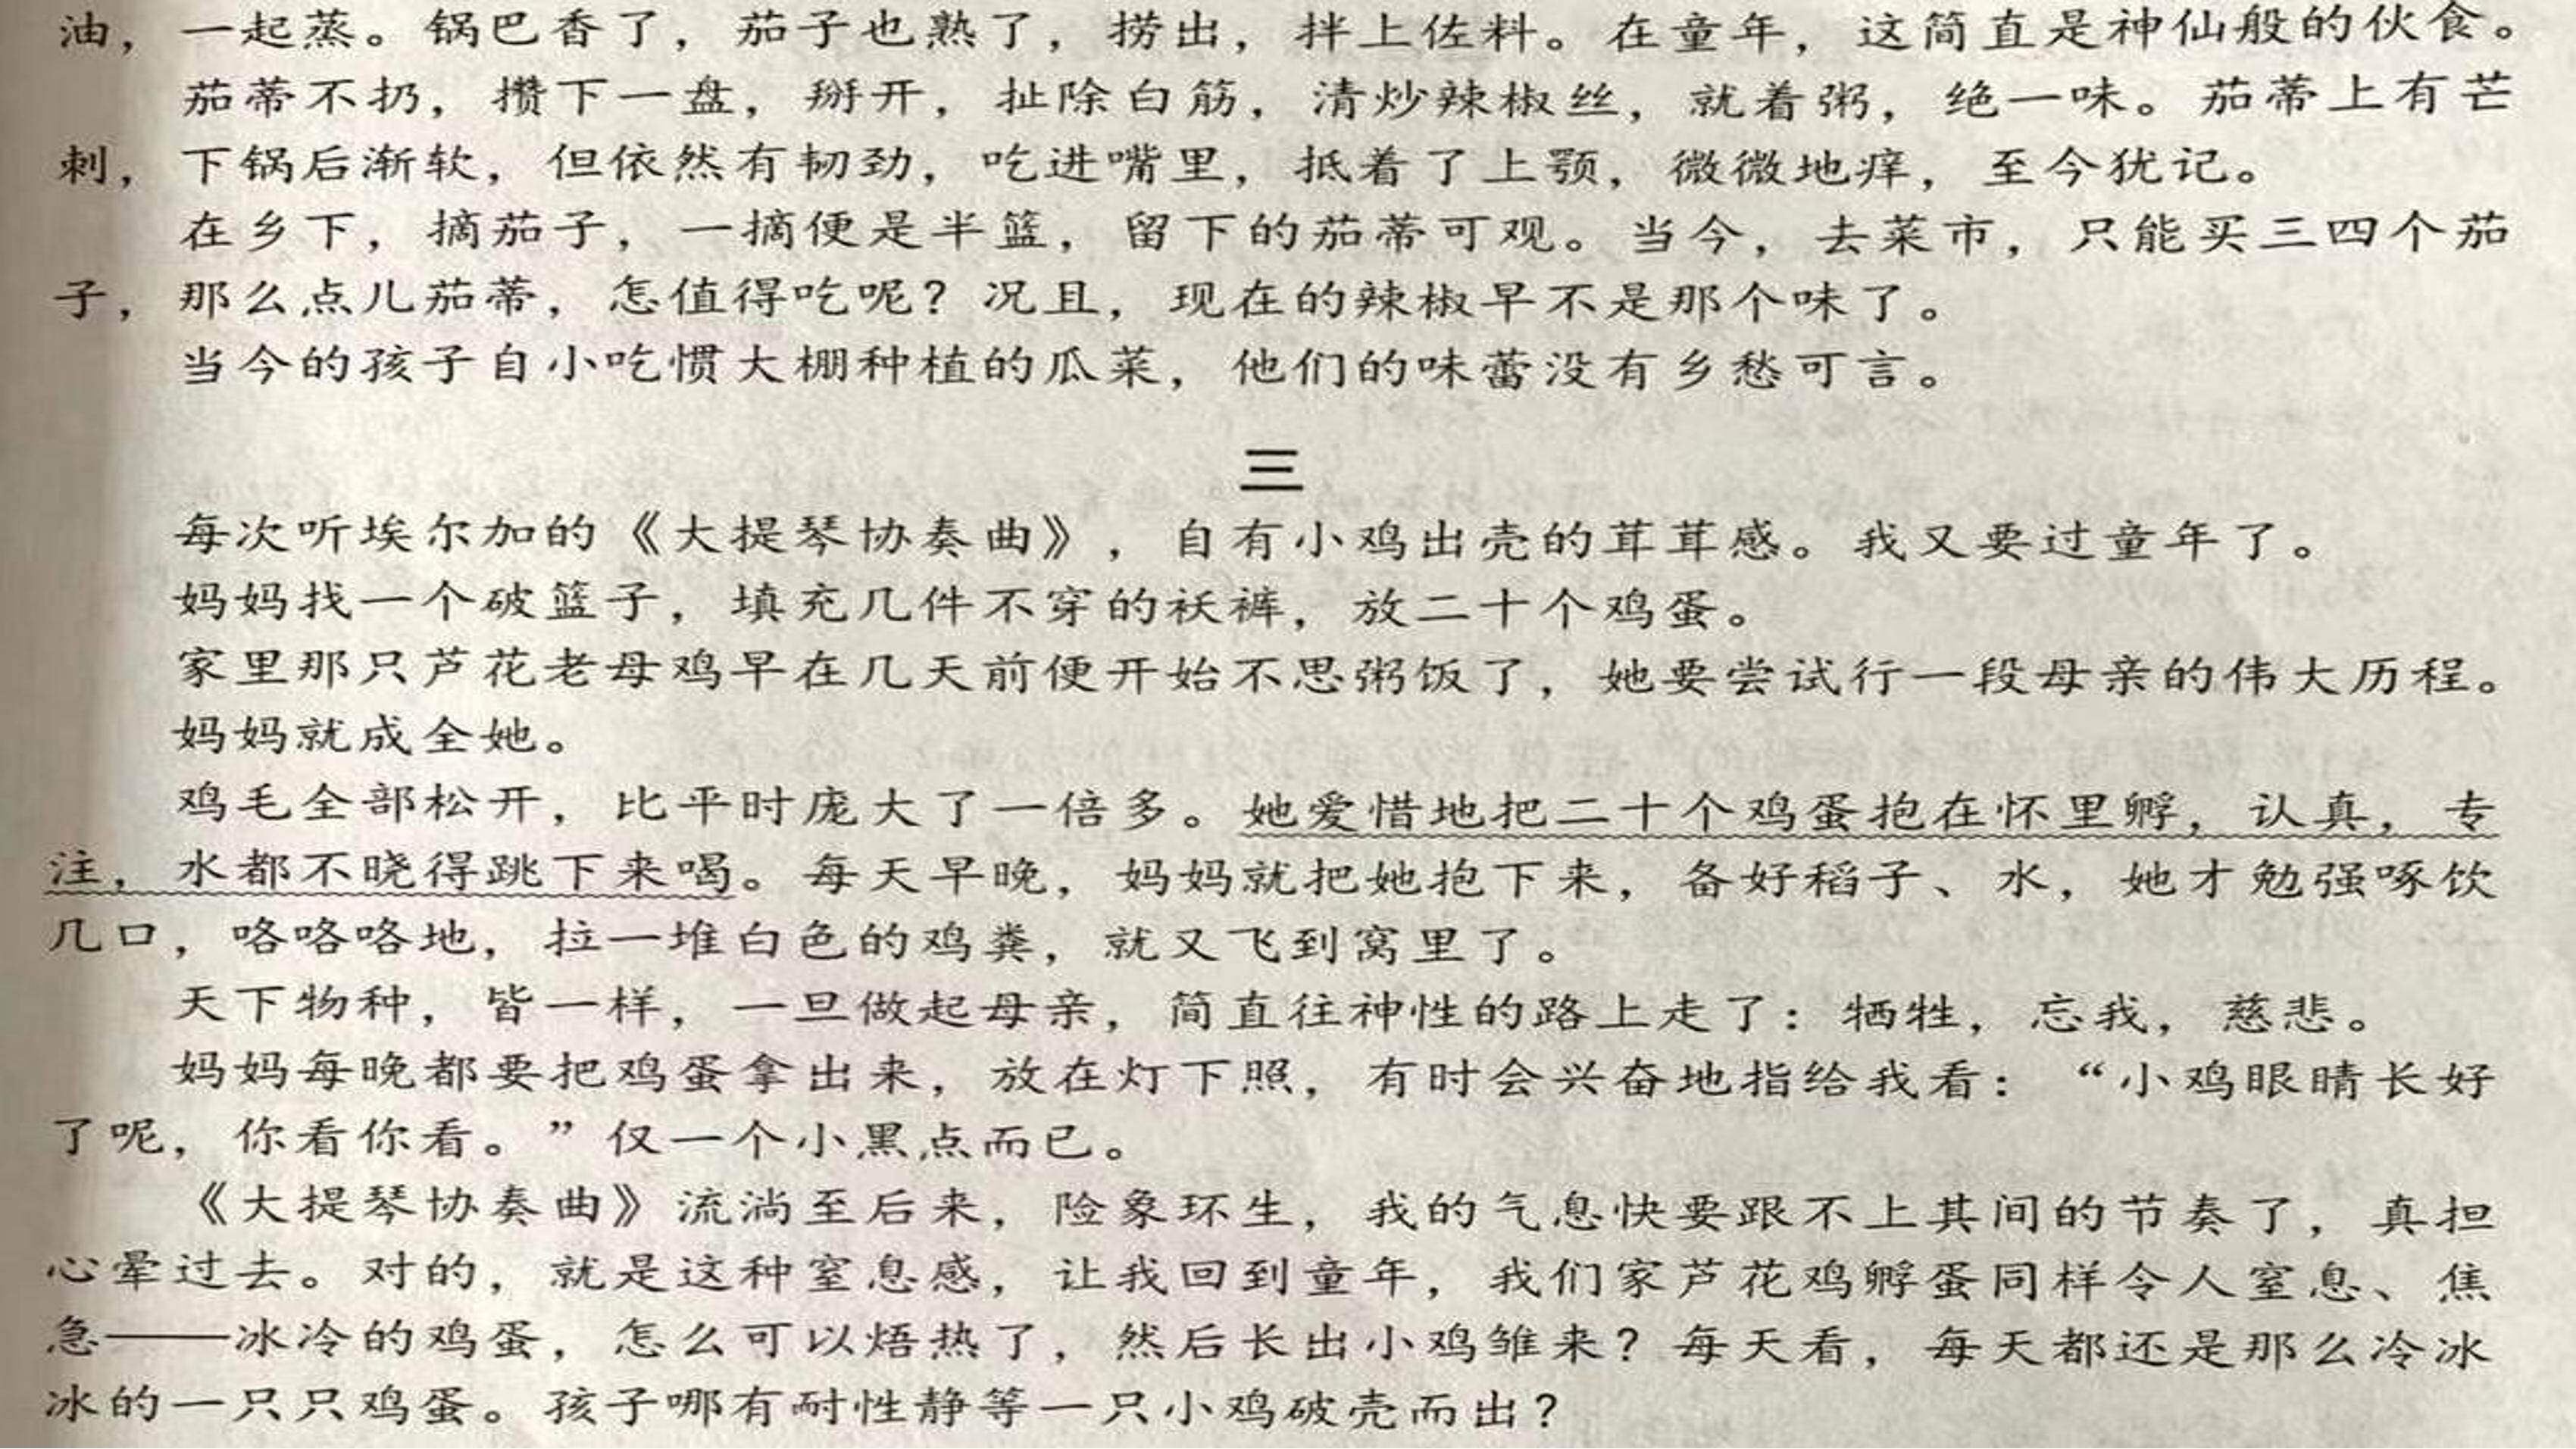 油，一起蒸。锅巴香了，茄子也熟了，捞出，拌上佐料。在童年，这简直是神仙般的伙食。
茄蒂不扔，攒下一盘，掰开，扯除白筋，清炒辣椒丝，就着粥，绝一味。茄蒂上有芒
刺，下锅后渐软，但依然有韧劲，吃进嘴里，抵着了上颚，微微地痒，至今犹记。
在乡下，摘茄子，一摘便是半篮，留下的茄蒂可观。当今，去菜市，只能买三四个茄
子，那么点儿茄蒂，怎值得吃呢？况且，现在的辣椒早不是那个味了。
当今的孩子自小吃惯大棚种植的瓜菜，他们的味蕾没有乡愁可言。
三
每次听埃尔加的《大提琴协奏曲》，自有小鸡出壳的茸茸感。我又要过童年了。
妈妈找一个破篮子，填充几件不穿的袄裤，放二十个鸡蛋。
家里那只芦花老母鸡早在几天前便开始不思粥饭了，她要尝试行一段母亲的伟大历程。
妈妈就成全她。
鸡毛全部松开，比平时庞大了一倍多。她爱惜地把二十个鸡蛋抱在怀里孵，认真，专
注，水都不晓得跳下来喝。每天早晚，妈妈就把她抱下来，备好稻子、水，她才勉强啄饮
几口，咯咯咯地，拉一堆白色的鸡粪，就又飞到窝里了。
天下物种，皆一样，一旦做起母亲，简直往神性的路上走了：牺牲，忘我，慈悲。
妈妈每晚都要把鸡蛋拿出来，放在灯下照，有时会兴奋地指给我看：“小鸡眼睛长好
了呢，你看你看。”仅一个小黑点而已。
《大提琴协奏曲》流淌至后来，险象环生，我的气息快要跟不上其间的节奏了，真担
心晕过去。对的，就是这种窒息感，让我回到童年，我们家芦花鸡孵蛋同样令人窒息、焦
急——冰冷的鸡蛋，怎么可以焐热了，然后长出小鸡雏来？每天看，每天都还是那么冷冰
冰的一只只鸡蛋。孩子哪有耐性静等一只小鸡破壳而出？